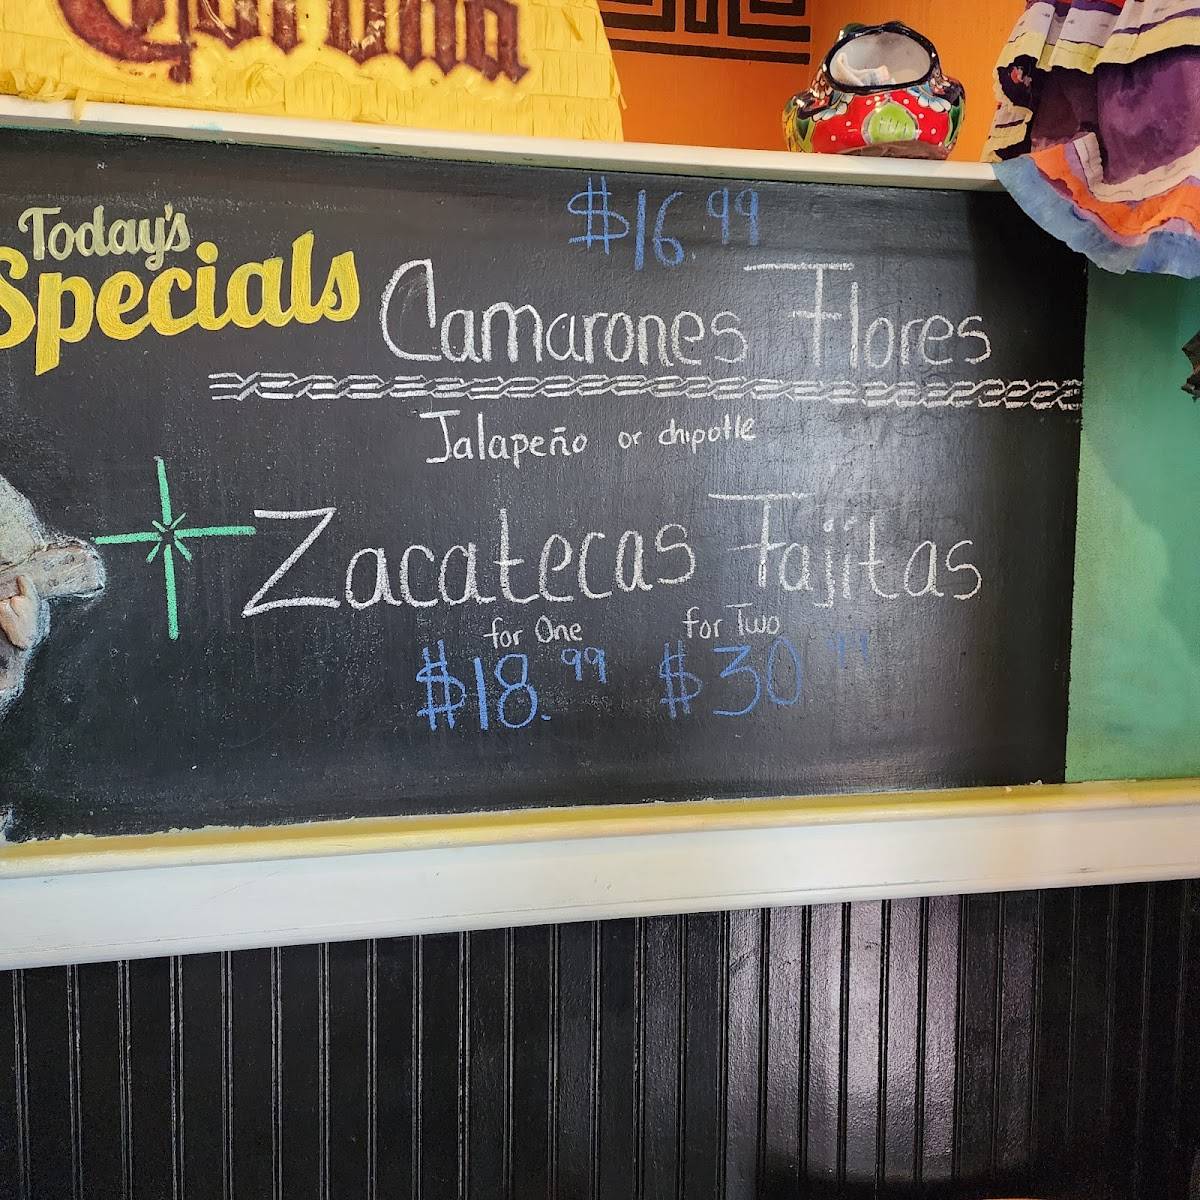 Corona
Today's
Specials
$16.99
Camarones Flores
Jalapeño or chipotle
Zacatecas Fajitas
for One for Two
$18.99 $30